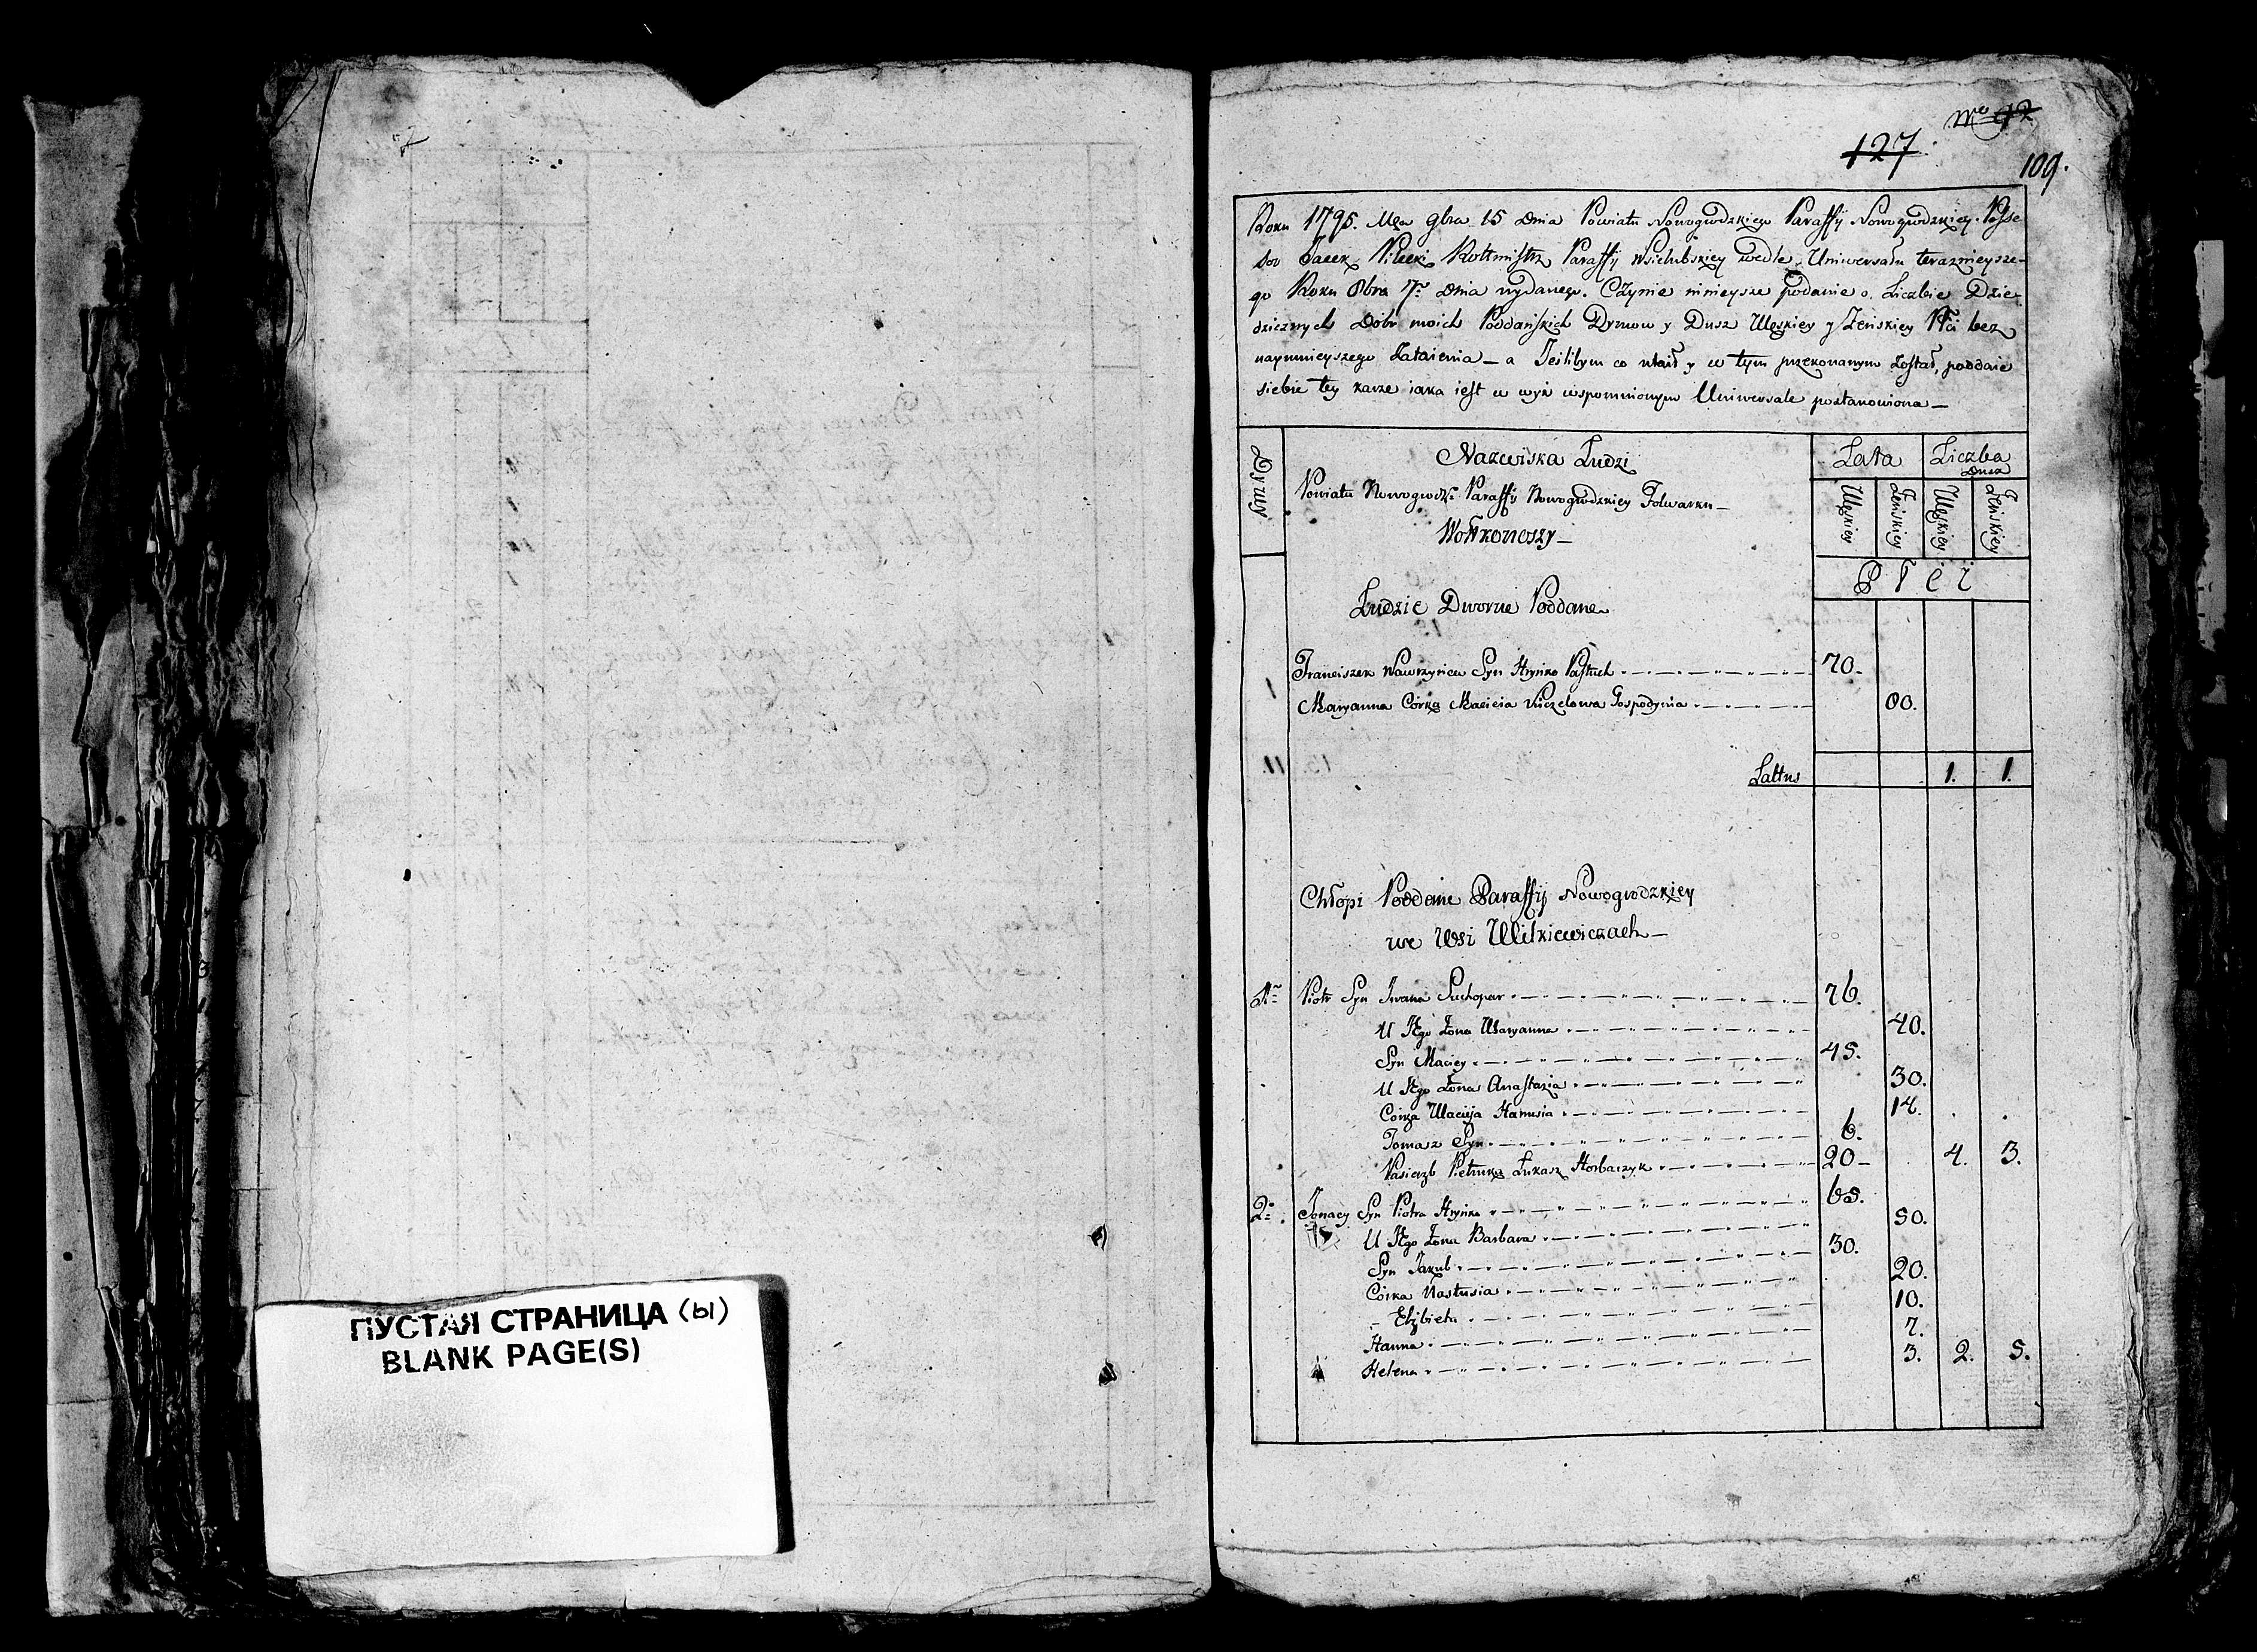 ПУСТАЯ СТРАНИЦА (ы)
BLANK PAGE(S)
No 92
127
109.
Roku 1795. Mca 9bra 15 Dnia Powiatu Nowogrodzkiego Paraffij Nowogrodzkiey. Posse-
sor Jacek Rotmistrz Paraffij Wsielubskiey wedle Uniwersału teraznieysze-
go Roku 8bra 7o Dnia wydanego. Czynie ninieysze podanie o Liczbie Dzie-
dzicznych Dobr moich Poddańskich Dymow y Dusz Męskiey y Żeńskiey Płci bez
naymnieyszego Zataienia – a Jeślibym co utaił y w tym przekonanym został, poddaie
siebie tey karze iaka iest w wyż wspomnionym Uniwersale postanowiona –
Dymy
Nazwiska Ludzi
Lata
Liczba
Dusz
Powiatu Nowogrodz: Paraffij Nowogrodzkiey Folwarku –
Wołkonoszy –
Męskiey
Żeńskiey
Męskiey
Żeńskiey
P ł c i
Ludzie Dworne Poddane
1 Franciszek Wawrzyńca Syn Hryńko Pastuch 70.
Maryanna Córka Macieia Gospodynia 60.
Lattus 1. 1.
Chłopi Poddane Paraffij Nowogrodzkiey
we Wsi Milkiewiczach –
1o Piotr Syn Iwana Suchopar 76.
U Jtgo Żona Maryanna 40.
Syn Maciey 45.
U Jtgo Żona Anastazia 30.
Córka Macieja Hanusia 14.
Tomasz Syn 6.
Pasierzb Pietruka Łukasz Horbaczyk 20 – 4. 3.
2o. Jgnacy Syn Piotra Hryńko 65.
U Jtgo Żona Barbara 50.
Syn Jakub 30.
Córka Nastusia 20.
– Elżbieta 10.
Hanna 7.
Helena 3. 2. 5.